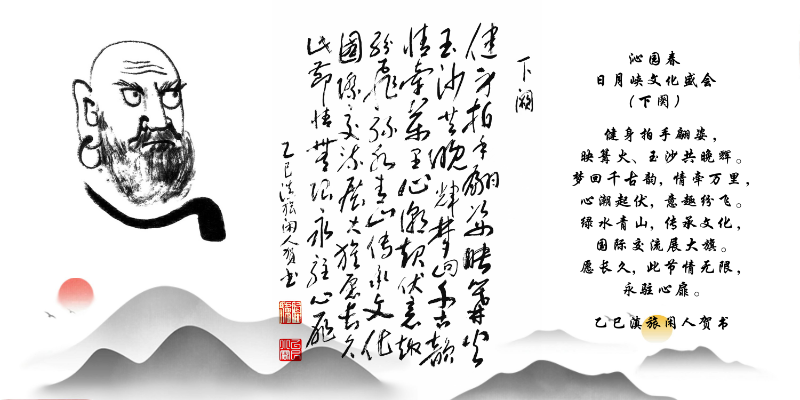 下阕
健身拍手翩姿映篝火
玉沙共晚辉梦回千古韵
情牵万里心潮起伏意趣
纷飞绿水青山传承文化
国际交流展大旗愿长久
此节情无限永驻心扉
乙巳滇旅闲人贺书
沁园春
日月峡文化盛会
(下阕)
健身拍手翩姿，
映篝火、玉沙共晚辉。
梦回千古韵，情牵万里，
心潮起伏，意趣纷飞。
绿水青山，传承文化，
国际交流展大旗。
愿长久，此节情无限，
永驻心扉。
乙巳滇旅闲人贺书